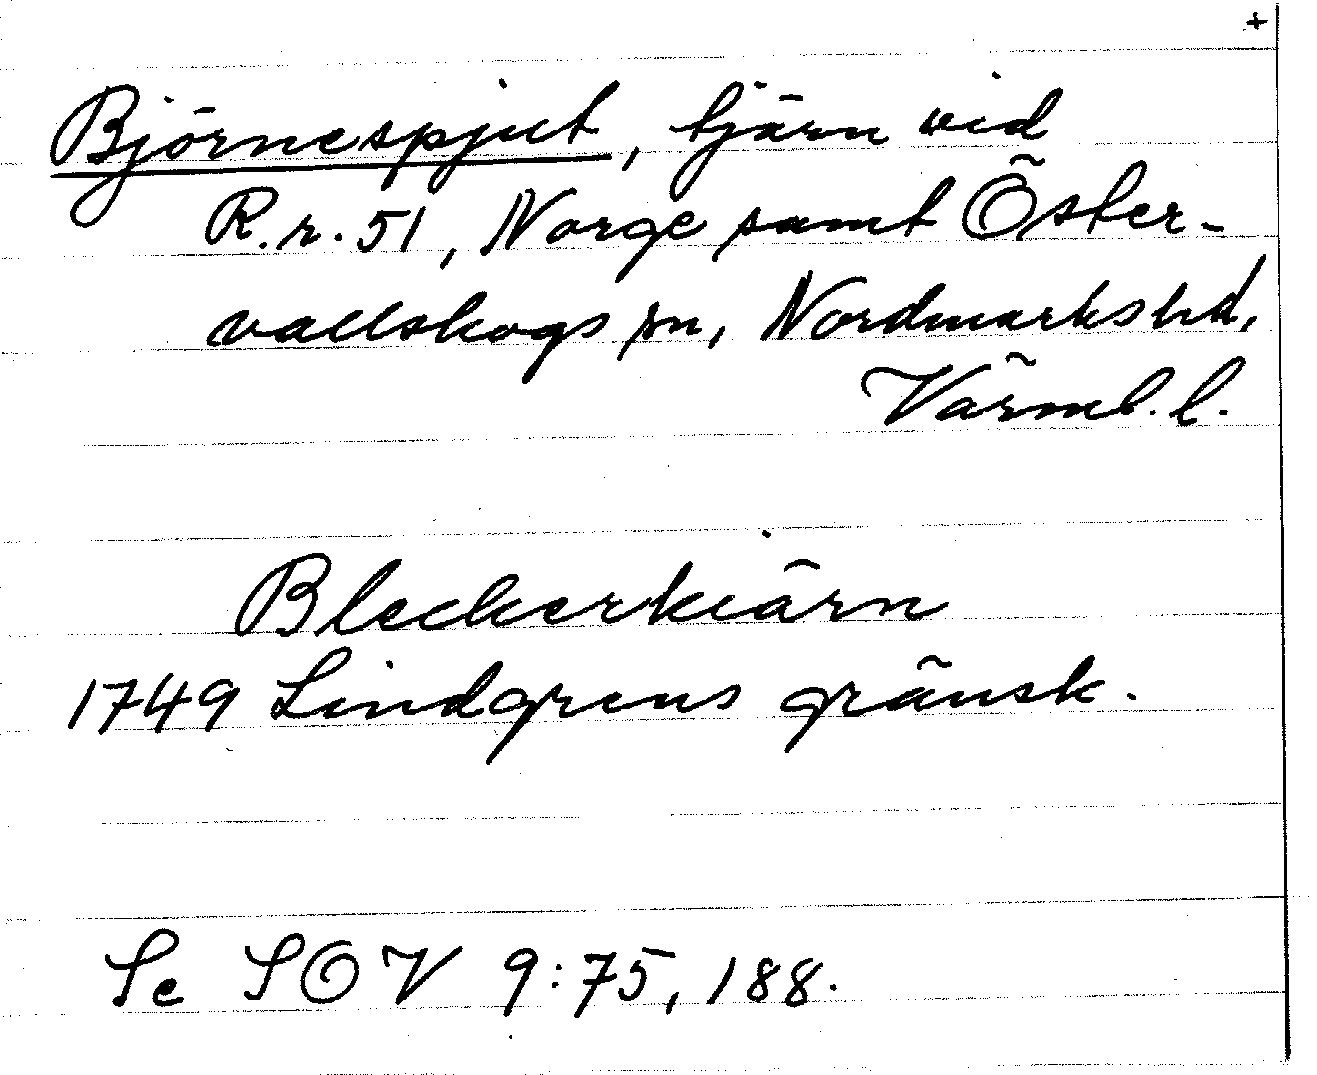 +
Björnespjut, tjärn vid
R.r. 51, Norge samt Öster-
vallskogs sn, Nordmarks hd,
Värml. l.
Bleckerkiärn
1749 Lindgrens gränsk.
Se SOV 9:75, 188.